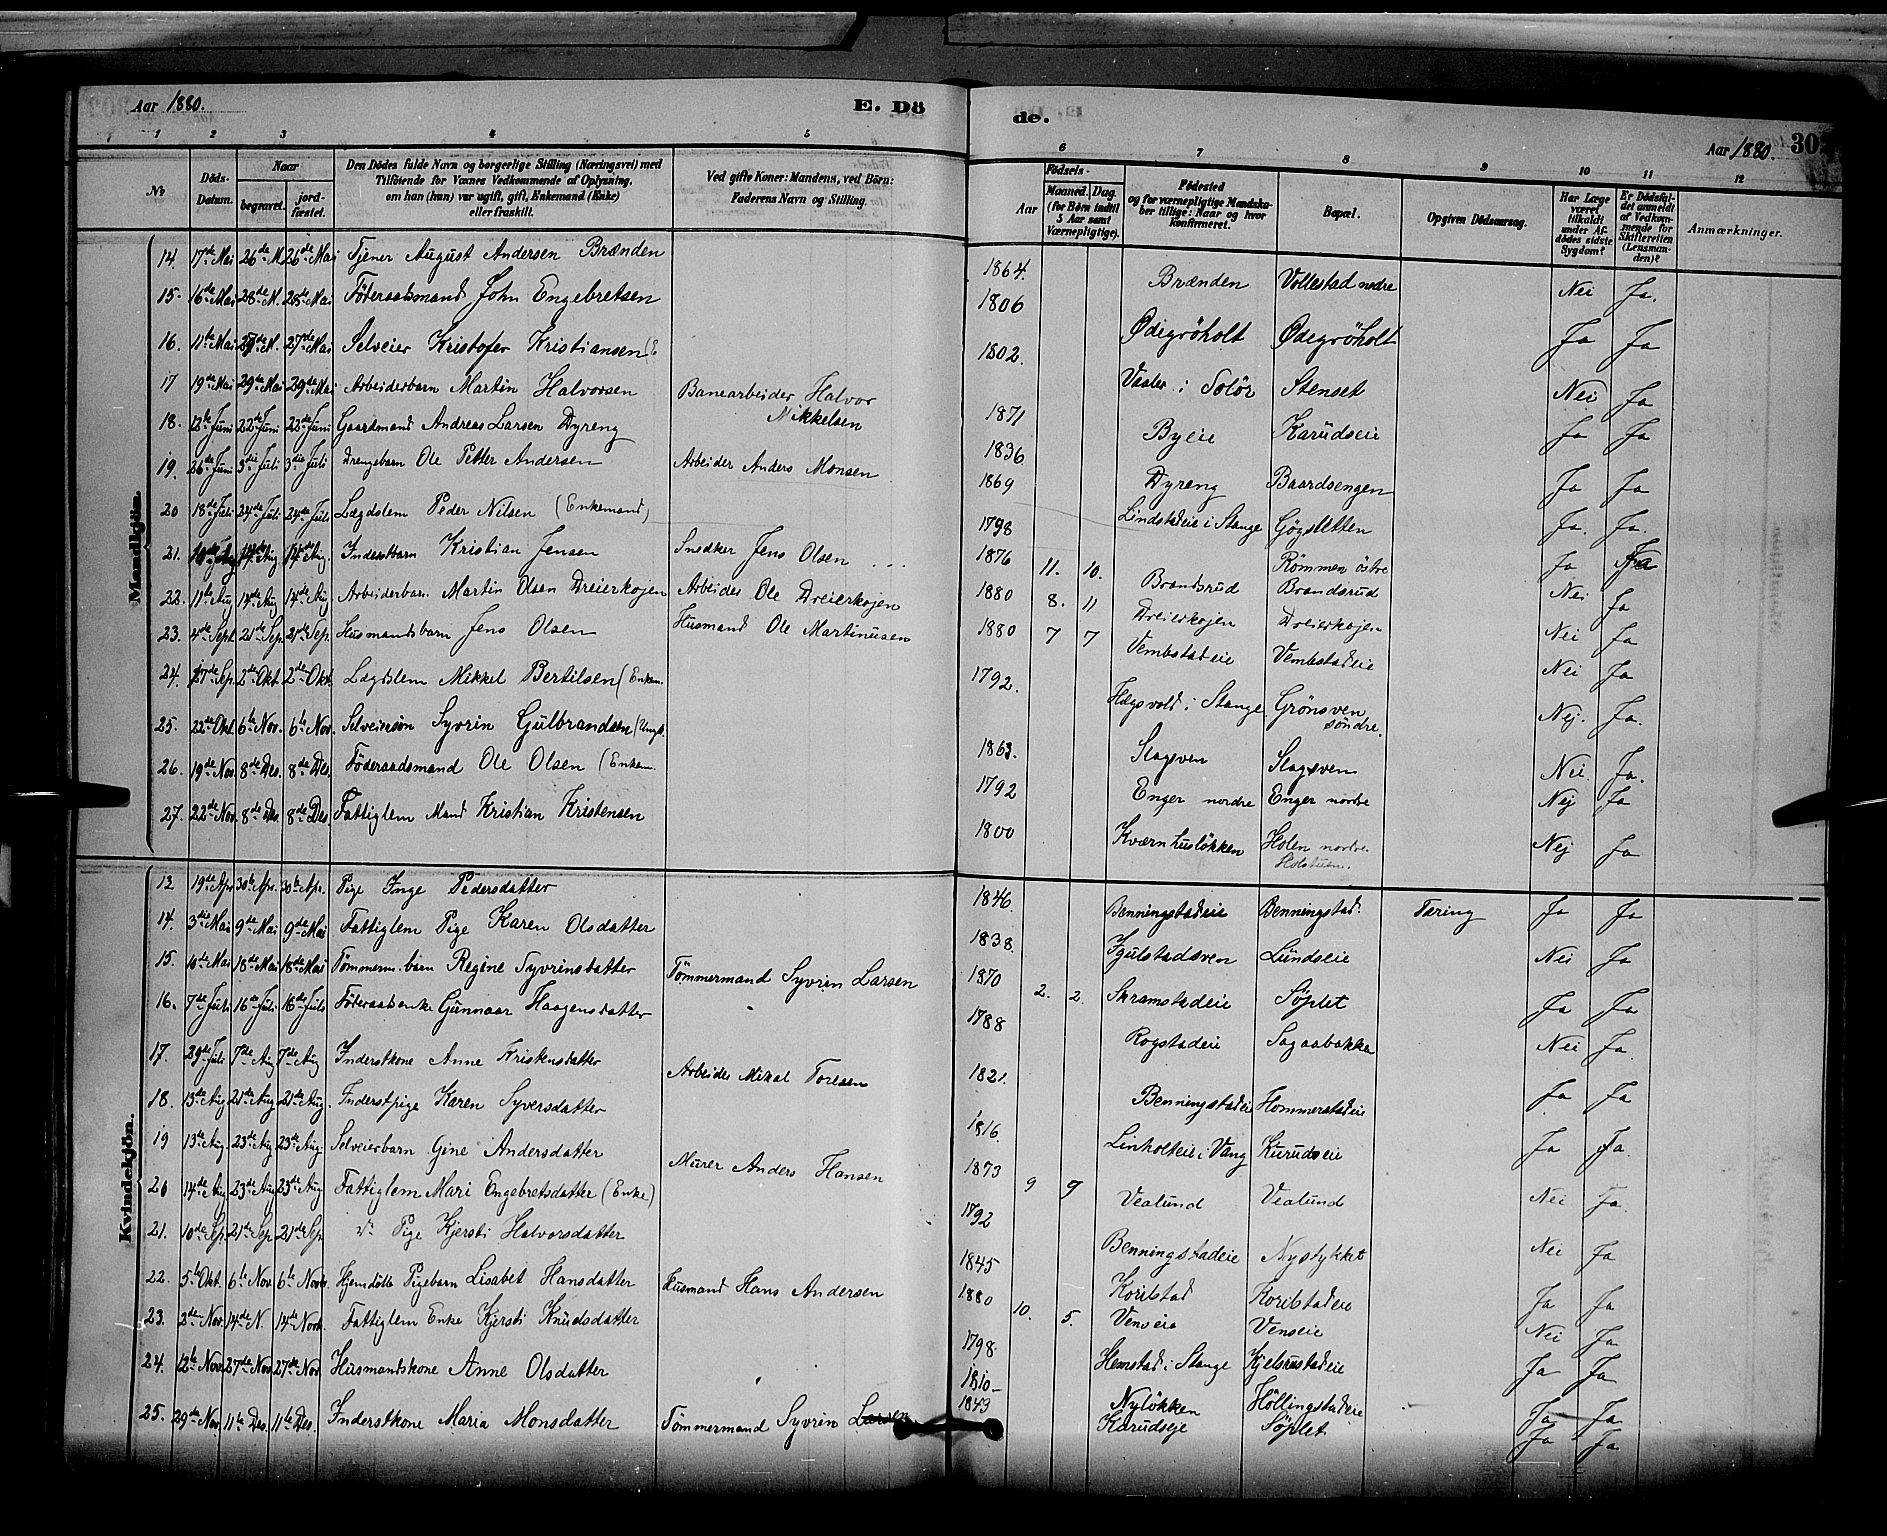 Aar 1880. E. Dö
1 2 3 4 5
No Döds-Datum. Naar begravet. jord-fæstet. Den Dödes fulde Navn og borgerlige Stilling (Næringsvei) med Tilföiende for Voxnes Vedkommende af Oplysning, om han (hun) var ugift, gift, Enkemand (Enke) eller fraskilt. Ved gifte Koner: Mandens, ved Börn: Faderens Navn og Stilling.
Mandkjön.
14. 17de Mai 26de M. 26de Mai Tjener August Andersen Brænden
15. 16de Mai 28de M. 28de Mai Föderaadsmand John Engebretsen
16. 11te Mai 27de M. 27de Mai Selveier Kristofer Kristiansen (E
17 19de Mai 29de Mai 29de Mai Arbeiderbarn Martin Halvorsen Banearbeider Halvor Mikkelsen
18. 12te Juni 22de Juni 22de Juni Gaardmand Andreas Larsen Dyreng
19. 26de Juni 3die Juli 3die Juli Drengebarn Ole Petter Andersen Arbeider Anders Monsen
20 18de Juli 24de Juli 24de Juli Lægdslem Peder Nilsen (Enkemand)
21. 14de Aug 14de Aug. Inderstbarn Kristian Jensen Snedker Jens Olsen
22. 11te Aug 14de Aug 14de Aug Arbeiderbarn Martin Olsen Dreierkojen Arbeider Ole Dreierkojen
23. 4de Sept. 21de Sep. 21de Sep. Husmandsbarn Jens Olsen Husmand Ole Martinusen
24. 17de Sep. 2det Okt. 2det Okt. Lægdslem Mikkel Bertilsen (Enkem.
25. 22de Okt. 6te Nov. 6te Nov. Selveiersön Syvrin Gulbrandsen (Ungk.
26. 19de Nov. 8de Des. 8de Des. Föderaadsmand Ole Olsen (Enkem.
27. 22de Nov. 8de Des. 8de Des. Fattiglem Mand Kristian Kristensen
Kvindekjön.
13 19de Apr 30te Apr. 30te Apr. Pige Inge Pedersdatter
14. 3die Mai 9de Mai 9de Mai Fattiglem Pige Karen Olsdatter
15. 10de Mai 18de Mai 18de Mai Tömmerm. barn Regine Syvrinsdatter Tömmermand Syvrin Larsen
16. 7de Juli 16de Juli 16de Juli Föderaadsenke Gunnaar Haagensdatter
17. 29de Juli 7de Aug 7de Aug Inderstkone Anne Kristensdatter Arbeider Mikal Toresen
18. 13de Aug 21de Aug 21de Aug. Inderstpige Karen Syversdatter
19 13de Aug. 23de Aug 23de Aug. Selveierbarn Gine Andersdatter Murer Anders Hansen
20 14de Aug 23de Aug 23de Aug Fattiglem Mari Engebretsdatter (Enke)
21. 10de Sep. 21de Sep 21de Sep. do Pige Kjersti Halvorsdatter
22. 5te Okt. 6te Nov. 6te Nov. Hjemdöbt Pigebarn Lisabet Hansdatter Husmand Hans Andersen
23. 2de Nov. 14de N. 14de Nov. Fattiglem Enke Kjersti Knudsdatter
24. 12te Nov. 27de Nov. 27de Nov Husmandskone Anne Olsdatter
25. 29de Nov. 11te Des. 11te Des. Inderstkone Maria Monsdatter Tömmermand Syvrin Larsen
de. Aar 1880. 30
6 7 8 9 10 11 12
Födsels- Aar Maaned. Dag. (for Börn indtil 5 Aar samt Værnepligtige). Födested og for værnepligtige Mandskaber tillige: Naar og hvor Konfirmeret. Bopæl. Opgiven Dödsaarsag. Har Læge været tilkaldt under Afdödes sidste Sygdom? Er Dödsfaldet anmeldt af Vedkommende for Skifteretten (Lensmanden)? Anmærkninger.
1864. Brænden Vollestad nedre Nei Ja.
1806 Ødegröholt Ødegröholt Ja Ja
1802. Vaaler i Solör Stenset Nei Ja
1871 Byeie Karudseie Ja Ja
1836. Dyreng Baardsengen Ja Ja
1869 Lindstadeie i Stange Ja. Ja.
1798 Römmen östre Ja Ja
1876 11. 10. Brandsrud Brandsrud Nei Ja
1880 8. 11 Dreierkojen Dreierkojen Nei Ja
1880 7 7 Vembstadeie Vembstadeie Nei Ja
1792. i Stange Grönsven söndre. Nej. Ja.
1863. Slagsven Slagsven Nei Ja.
1792 Enger nordre Enger nordre Nej Ja
1800 Kværnhuslökken Holen nordre Nej Ja
1846. Benningstadeie Benningstad. Tæring Ja Ja
1838. Lundseie Nei Ja
1870 2. 2. Skramstadeie Söplet Ja Ja
1788 Rogstadeie Sagaabakken Nei Ja.
1821. Benningstadeie Hommerstadeie Ja Ja
1816. Linholteie i Vang Kurudseie Ja Ja.
1873 9 9 Vealund Vealund Nei Ja.
1792 Benningstadeie Nystykket Nei Ja
1845 Korilstad Korilstadeie Ja Ja
1880 10. 5. Venseie Venseie Nei Ja
1798. Hemstad i Stange Kjelsrustadeie Ja Ja
1810 Nylökken Höllingstadeie Ja Ja
1843 Karudseje Söplet Ja Ja